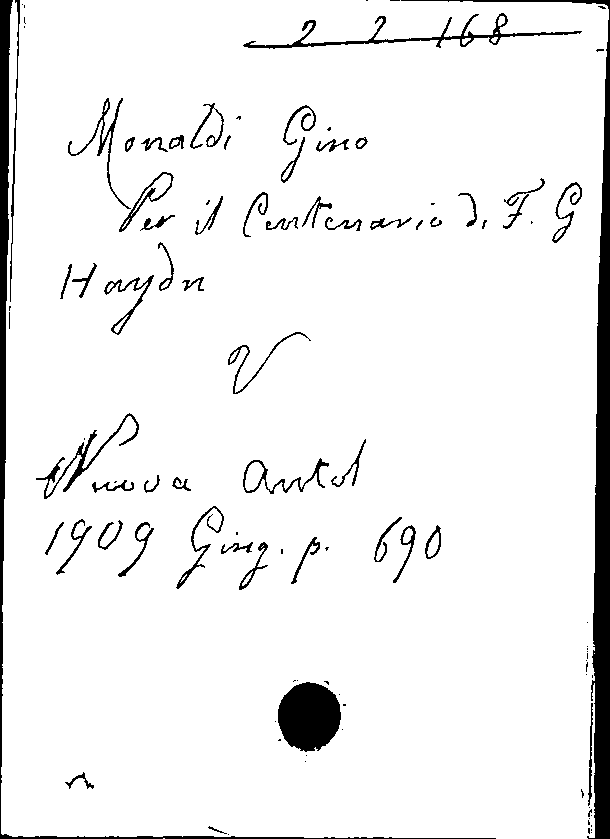 2 2 168
Monaldi Gino
Per il Centenario di F. G
Haydn
V
Nuova Antol
1909 Giug. p. 690